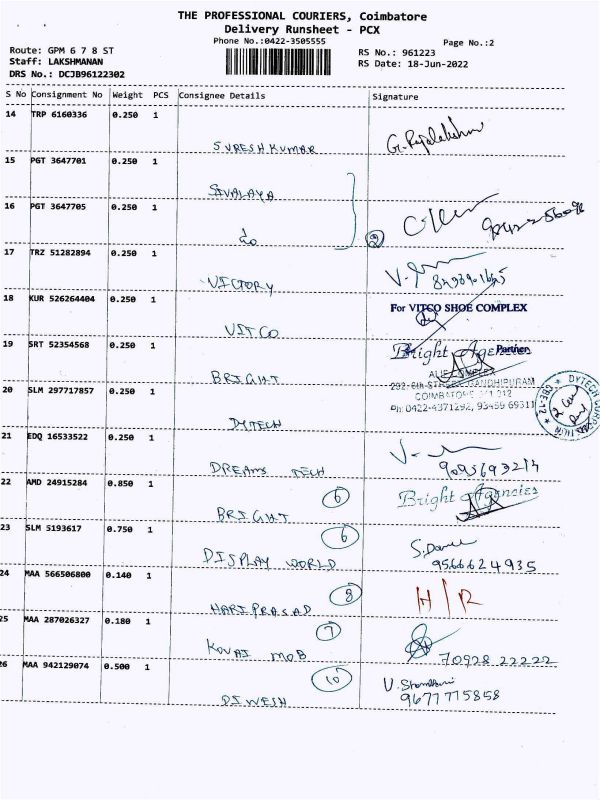 THE PROFESSIONAL COURIERS, Coimbatore
Delivery Runsheet - PCX
Phone No.:0422-3505555
Page No.:2
Route: GPM 6 7 8 ST
RS No.: 961223
Staff: LAKSHMANAN
RS Date: 18-Jun-2022
DRS No.: DCJB96122302
S No Consignment No Weight PCS Consignee Details Signature
14 TRP 6160336 0.250 1
SURESH KUMAR
15 PGT 3647701 0.250 1
SIVALAYA
16 PGT 3647705 0.250 1
do
2
17 TRZ 51282894 0.250 1
VICTORY
18 KUR 526264404 0.250 1
For VITCO SHOE COMPLEX
VITCO
Partner
19 SRT 52354568 0.250 1
Bright Agencies
BRIGHT
GANDHIPURAM
20 SLM 297717857 0.250 1
Ph: 0422-4371292, 93459 69311
DYTECH
21 EDQ 16533522 0.250 1
DREAMS TECH
9095693214
22 AMD 24915284 0.850 1
6
Bright Agencies
BRIGHT
23 SLM 5193617 0.750 1
6
DISPLAY WORLD
9566624935
24 MAA 566506800 0.140 1
8
H/R
HARI PRASAD
25 MAA 287026327 0.180 1
7
KOVAI MOB
70928 22222
26 MAA 942129074 0.500 1
10
DIWESH
9677715858